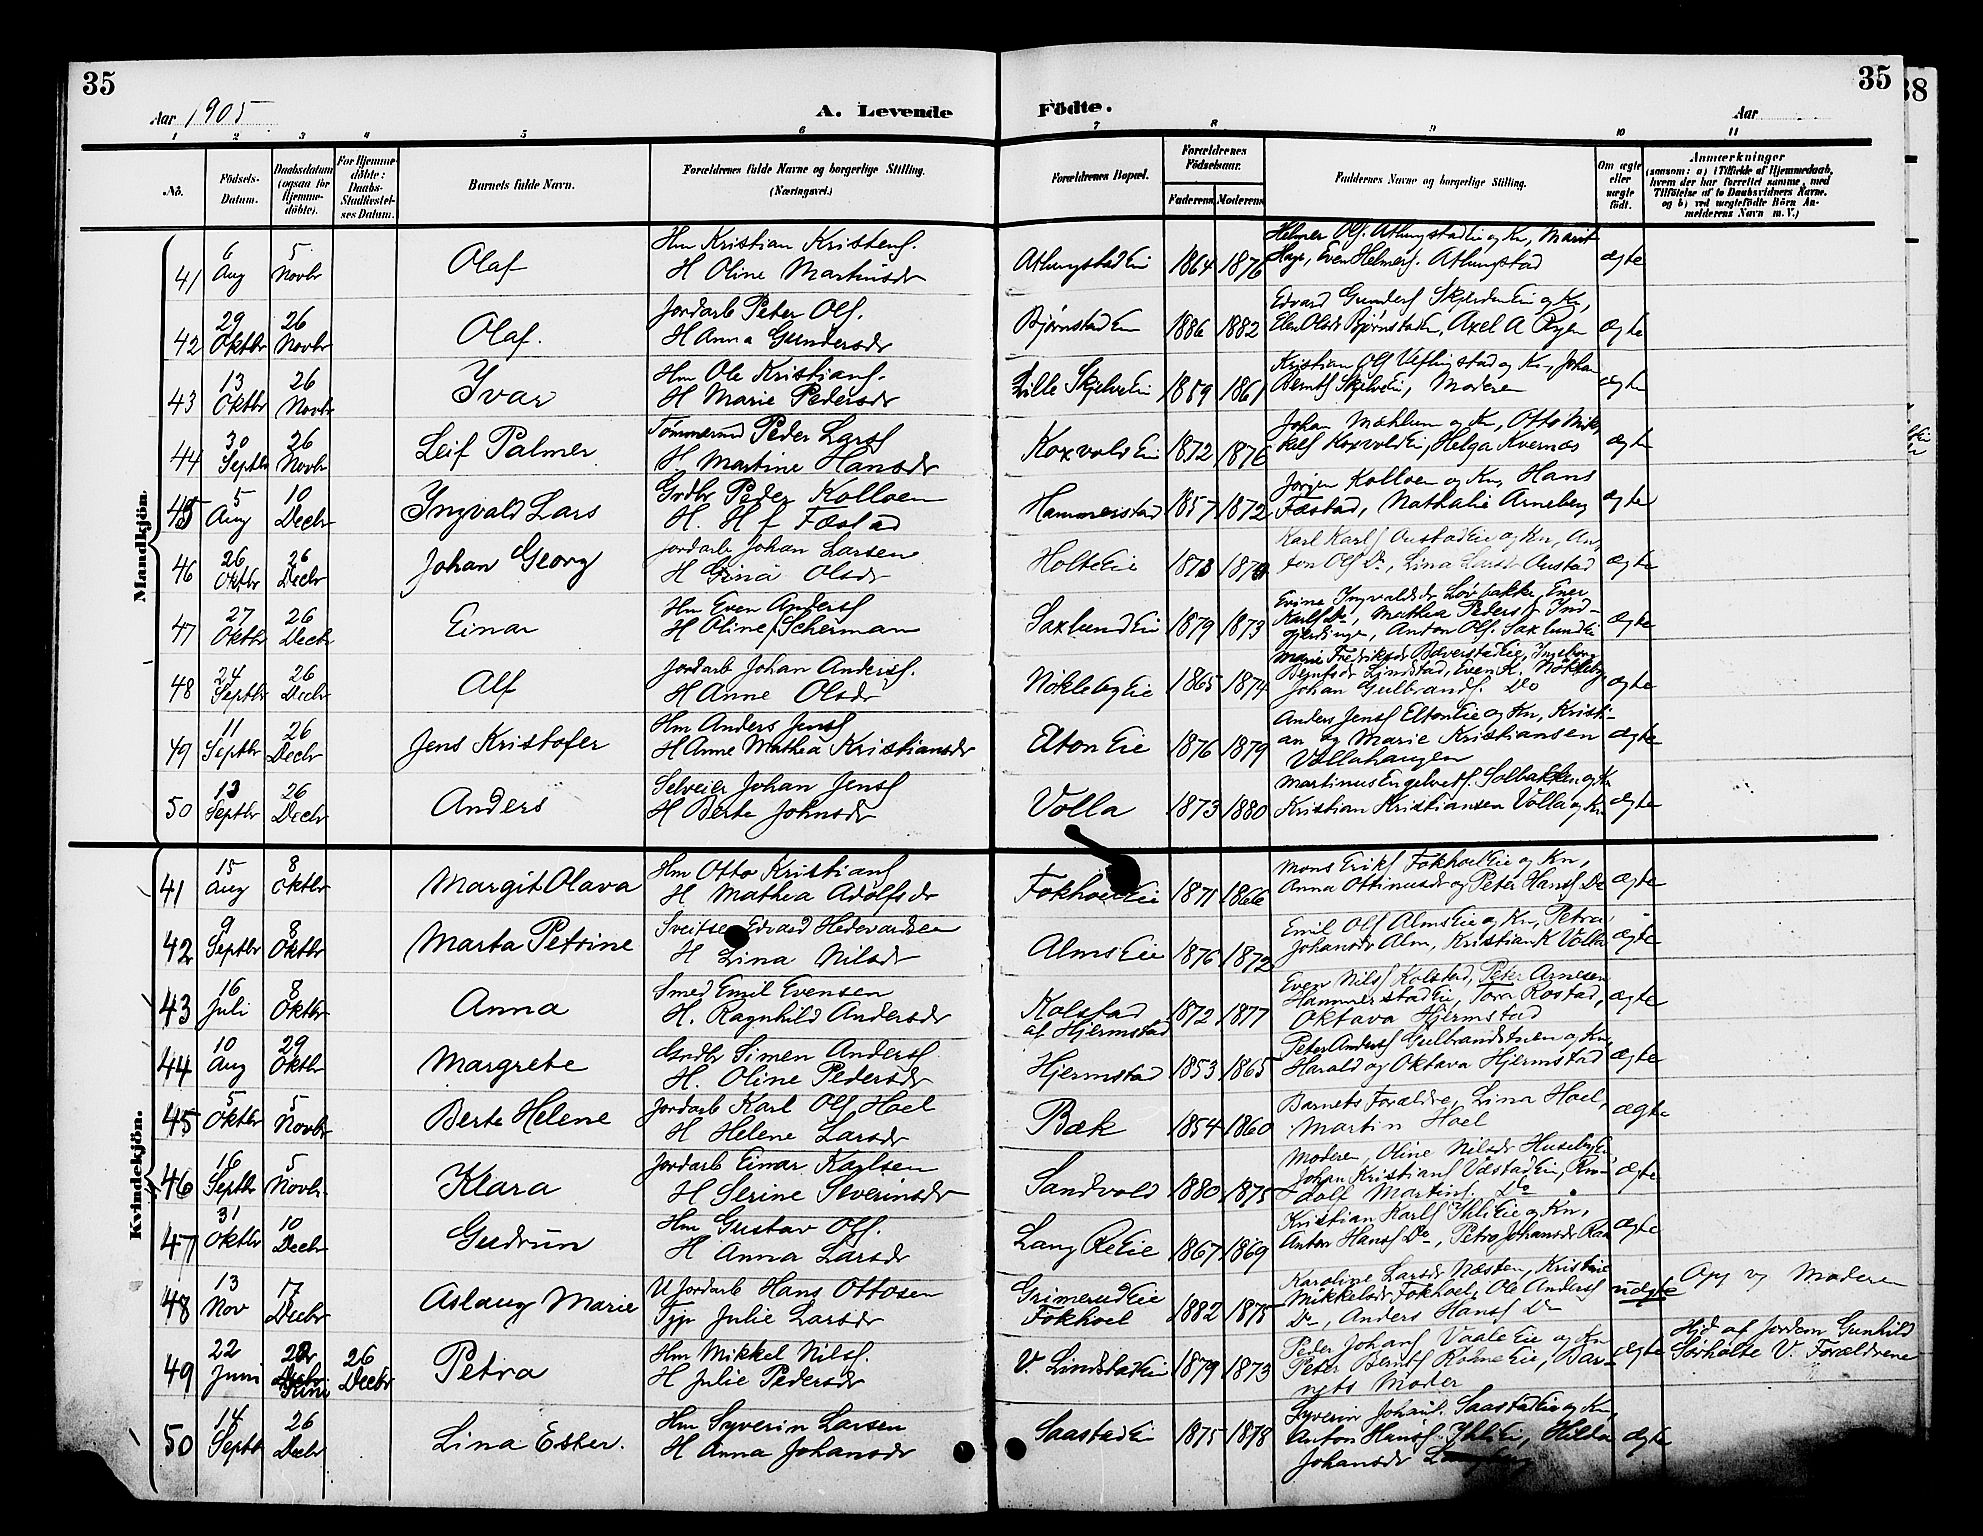 35
35
38
Aar 1905
A. Levende
Födte.
Aar
1 2 3 4 5 6 7 8 9 10 11
No.
Födsels-Datum.
Daabsdatum (ogsaa for Hjemmedöbte).
For Hjemmedöbte: Daabs-Stadfæstelses Datum.
Barnets fulde Navn.
Forældrenes fulde Navne og borgerlige Stilling.
(Næringsvei.)
Forældrenes Bopæl.
Forældrenes Födselsaar.
Faderens Moderens
Faddernes Navne og borgerlige Stilling.
Om ægte eller uægte födt.
Anmærkninger
(saasom: a) i Tilfælde af Hjemmedaab,
hvem der har forrettet samme, med
Tilföielse af to Daabsvidners Navne,
og b) ved uægtefödte Börn Anmelderens Navn m.V.)
Mandkjön.
41 6 Aug 5 Novbr Olaf Hm Kristian Kristens. H Oline Martinusdr 1864 1876 Helmer Ols. og Kn, Marit Even Helmers. ægte
42 29 Oktbr 26 Novbr Olaf. Jordarb Peter Ols. H Anna Gundersdr Bjørnstad Eie 1886 1882 Edvard Gunders Skjerden Eie og Kn, Elen Olsdr Bjørnstadeie, Axel A ægte
43 13 Oktbr 26 Novbr Ivar Hm Ole Kristians. H Marie Pedersdr Lille Skjelve Eie 1859 1861 Kristian Ols og Kn, Johan Bernts Skjelve Ei, Moderen ægte
44 30 Septbr 26 Novbr Leif Palmer Peder Larss H Martine Hansdr Koxvold Eie 1872 1876 Johan Mæhlum og Kn, Otto Mikkels Koxvold Ei, Helga Kvernæs ægte
45 5 Aug 10 Decbr Ingvald Lars Grdbr Peder Kolloen H. H f Fæstad Hammerstad 1857 1872 Jørgen Kolloen og Kn, Hans Fæstad, Nathalie Arneberg ægte
46 26 Oktbr 26 Decbr Johan Georg Jordarb Johan Larsen H Gina Olsdr Holte Eie Karl Karls Anstad Eie og Kn, Anton Ols Do, Lina Larsdr Anstad ægte
47 27 Oktbr 26 Decbr Einar Hm Even Anders H Oline Scherman Saxlund Ei 1879 1873 Evine Ingvaldsdr Løvbakke, Karls Do, Mathea Pedersdr Indgjerdingen, Anton Ols. Saxlund Ei ægte
48 24 Septbr 26 Decbr Alf Jordarb Johan Anders. H Anne Olsdr Nökleby Eie 1865 1874 Marie Fredriksdr Bæverstad Eie, Ingeborg Berntsdr Lindstad, Even K. Nökleby Johan Gulbrands. Do ægte
49 11 Septbr 26 Decbr Jens Kristofer Hm Anders Jens H Anne Mathea Kristiansdr Elton Eie 1876 1879 Anders Jens Elton Eie og Kn, Kristian og Marie Kristiansen Vollahaugen ægte
50 Septbr 26 Decbr Anders Selveier Johan Jens H Berte Johnsdr Volla 1873 1880 Martinus Engelbrets. Solbakken og Kn Kristian Kristiansen Volla og Kn ægte
Kvindekjön.
41 15 Aug 8 Oktbr Margit Olava Hm Otto Kristians H Mathea Adolfsdr Fokhoel Eie 1871 1866 Mons Eriks Fokhoel Eie og Kn, Anna Ottinusdr og Peter Hans Do ægte
42 9 Septbr 8 Oktbr Marta Petrine Sveitser Edvard H Lina Nilsdr Alms Eie 1876 1872 Emil Ols Alms Eie og Kn, Petra Johansdr Alm, Kristian K Volla ægte
43 16 Juli 8 Oktbr Anna Smed Emil Evensen H. Ragnhild Andersdr Kolstad af Hjermstad 1872 1877 Even Nils Kolstad, Peter Arnesen Hammerstad Eie, Tora Rostad, Oktava Hjermstad ægte
44 10 Aug 29 Oktbr Margrete Grdbr Simen Anders H. Oline Pedersdr Hjermstad 1853 1865 Peter Anders Gulbrandstuen og Kn, Harald og Oktava Hjermstad ægte
45 5 Oktbr 5 Novbr Berte Helene Jordarb Karl Ols Hoel H Helene Larsdr Bæk 1854 1860 Barnets Forældre, Lina Hoel, Martin Hoel ægte
46 16 Septbr 5 Novbr. Klara Jordarb Einar Karlsen H Serine Severinsdr Sandvold 1880 1875 Moderen, Oline Nilsdr Huseby Ei Johan Kristians Væstad Ei, Rudolf Martins. Do ægte
47 31 Oktbr 10 Decbr Gudrun Hm Gustav Ols. H Anna Larsdr Lang Re Eie 1867 1869 Kristian Karls Ihli Eie og Kn, Anton Hans Do, Petra Johansdr ægte
48 13 Nov 17 Decbr Aslaug Marie U Jordarb Hans Ottosen Typ Julie Larsdr Grimerud Eie Fokhoel 1882 1875 Karoline Larsdr Næsten, Kristine Mikkelsdr Fokhoel, Ole Anders Do, Anders Hans Do uægte Opg v Moderen
49 22 Juni 26 Decbr Petra Hm Mikkel Nils. H Julie Pedersdr V. Lindstad Eie 1879 1873 Peder Johans Vaale Eie og Kn Peter Bernts Eie, Barnets Moder ægte Hjd af Jordem Gunhild Sørholte V. Forældrene
50 14 Septbr 26 Decbr Lina Ester. Hm Syverin Larsen H Anna Johansdr Saastad Ei 1875 1878 Syverin Johans. Saastad Eie og Kn, Anton Hans Ihli Ei, Hilda Johansdr ægte